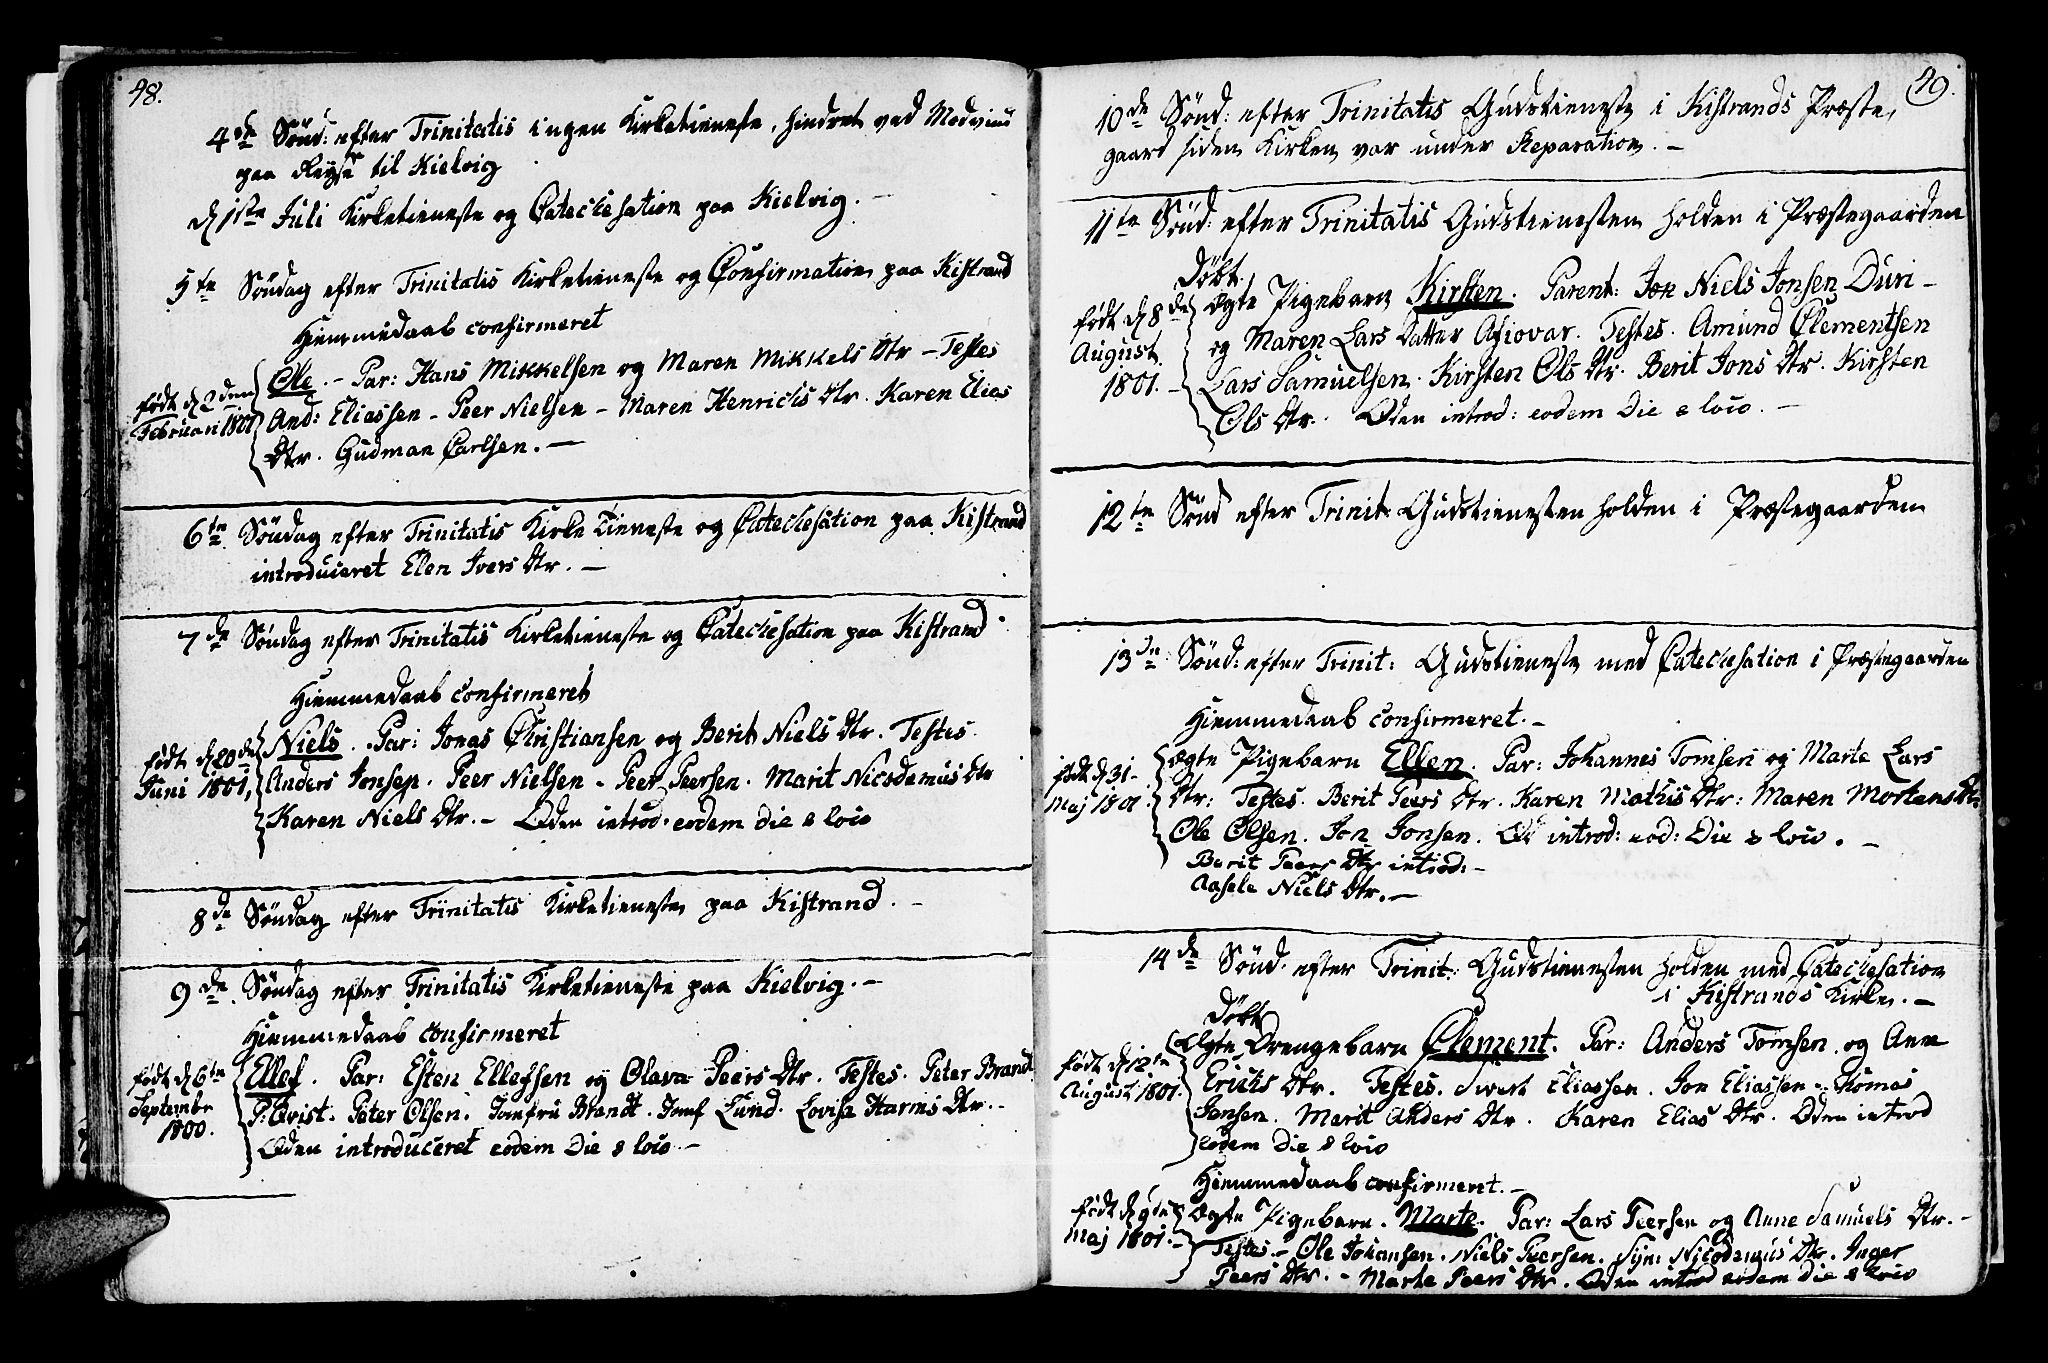 48.
4de Sönd: efter Trinitatis ingen Kirketieneste, hindret ved Modvind
paa Reyse til Kielvig
d 1ste Juli Kirketieneste og Catechesation paa Kielvig. —
5te Söndag efter Trinitatis Kirketieneste og Confirmation paa Kistrand
Hiemmedaab confirmeret
födt d 2den Februari 1801
Ole. — Par: Hans Mikkelsen og Maren Mikkels Dtr — Testes
And: Eliassen — Peer Nielsen — Maren Henrichs Dtr. Karen Elias
Dtr. Gudman Carlsen. —
6te Söndag efter Trinitatis Kirke Tieneste og Catechesation paa Kistrand
introduceret Elen Ivers Dtr. —
7de Söndag efter Trinitatis Kirketieneste og Catechesation paa Kistrand
Hiemmedaab confirmeret
födt d 20de Juni 1801,
Niels. Par: Jonas Christiansen og Berit Niels Dtr. Testes
Anders Jonsen. Peer Nielsen — Peer Peersen. Marit Nicodemus Dtr
Karen Niels Dtr. — introd: eodem die & loco
8de Söndag efter Trinitatis Kirketieneste paa Kistrand. —
9de Söndag efter Trinitatis Kirketieneste paa Kielvig. —
Hiemmedaab confirmeret
födt d 6te September 1800.
Ellef. Par: Esten Ellefsen og Olava Peers Dtr. Testes. Peter Brandt
P: Qvist. Peter Olsen. Jomfru Brandt. Jomf Lund. Lovisa Harms Dtr. —
introduceret eodem Die & loco —
49.
10de Sönd: efter Trinitatis Gudstieneste i Kistrands Præste,
gaard siden Kirken var under Reparation. —
11te Sönd: efter Trinitatis Gudstienesten holden i Præstegaarden
Döbt.
födt d 8de August 1801. —
Ægte Pigebarn Kirsten. Parent: Jon Niels Jonsen Duri —
og Maren Lars Datter Testes. Amund Clementsen
Lars Samuelsen. Kirsten Ols Dtr. Berit Jons Dtr. Kirsten
Ols Dtr. introd: eodem Die & loco. —
12te Sönd efter Trinit: Gudstienesten holden i Præstegaarden
13de Sönd: efter Trinit: Gudstieneste med Catechesation i Præstegaarden
Hiemmedaab confirmeret. —
födt d 31 — Maj 1801.
ægte Pigebarn Ellen. Par: Johannes Tomsen og Marte Lars
Dtr: Testes. Berit Peers Dtr. Karen Mathis Dtr: Maren Mortens Dtr
Ole Olsen. Jon Jonsen. introd: eod: Die & loco. —
Berit Peers Dtr introd: —
Aasele Niels Dtr. —
14de Sönd. efter Trinit: Gudstienesten holden med Catechesation
i Kistrands Kirke. —
Döbt
födt d 12te August 1801.
Ægte Drengebarn Clement. Par: Anders Tomsen og Ane
Erichs Dtr. Testes. Eliassen. Jon Eliassen — Tomas
Jonsen. Marit Anders Dtr. Karen Elias Dtr. introd
eodem Die & loco
Hiemmedaab confirmeret. —
födt d 9de Maj 1801. —
Ægte Pigebarn. Marte. Par: Lars Peersen og Anne Samuels Dtr. —
Testes. — Ole Johansen. Niels Peersen. Nicodemus Dtr. Inger
Peers Dtr. — Marte Peers Dtr. introd eodem die & loco